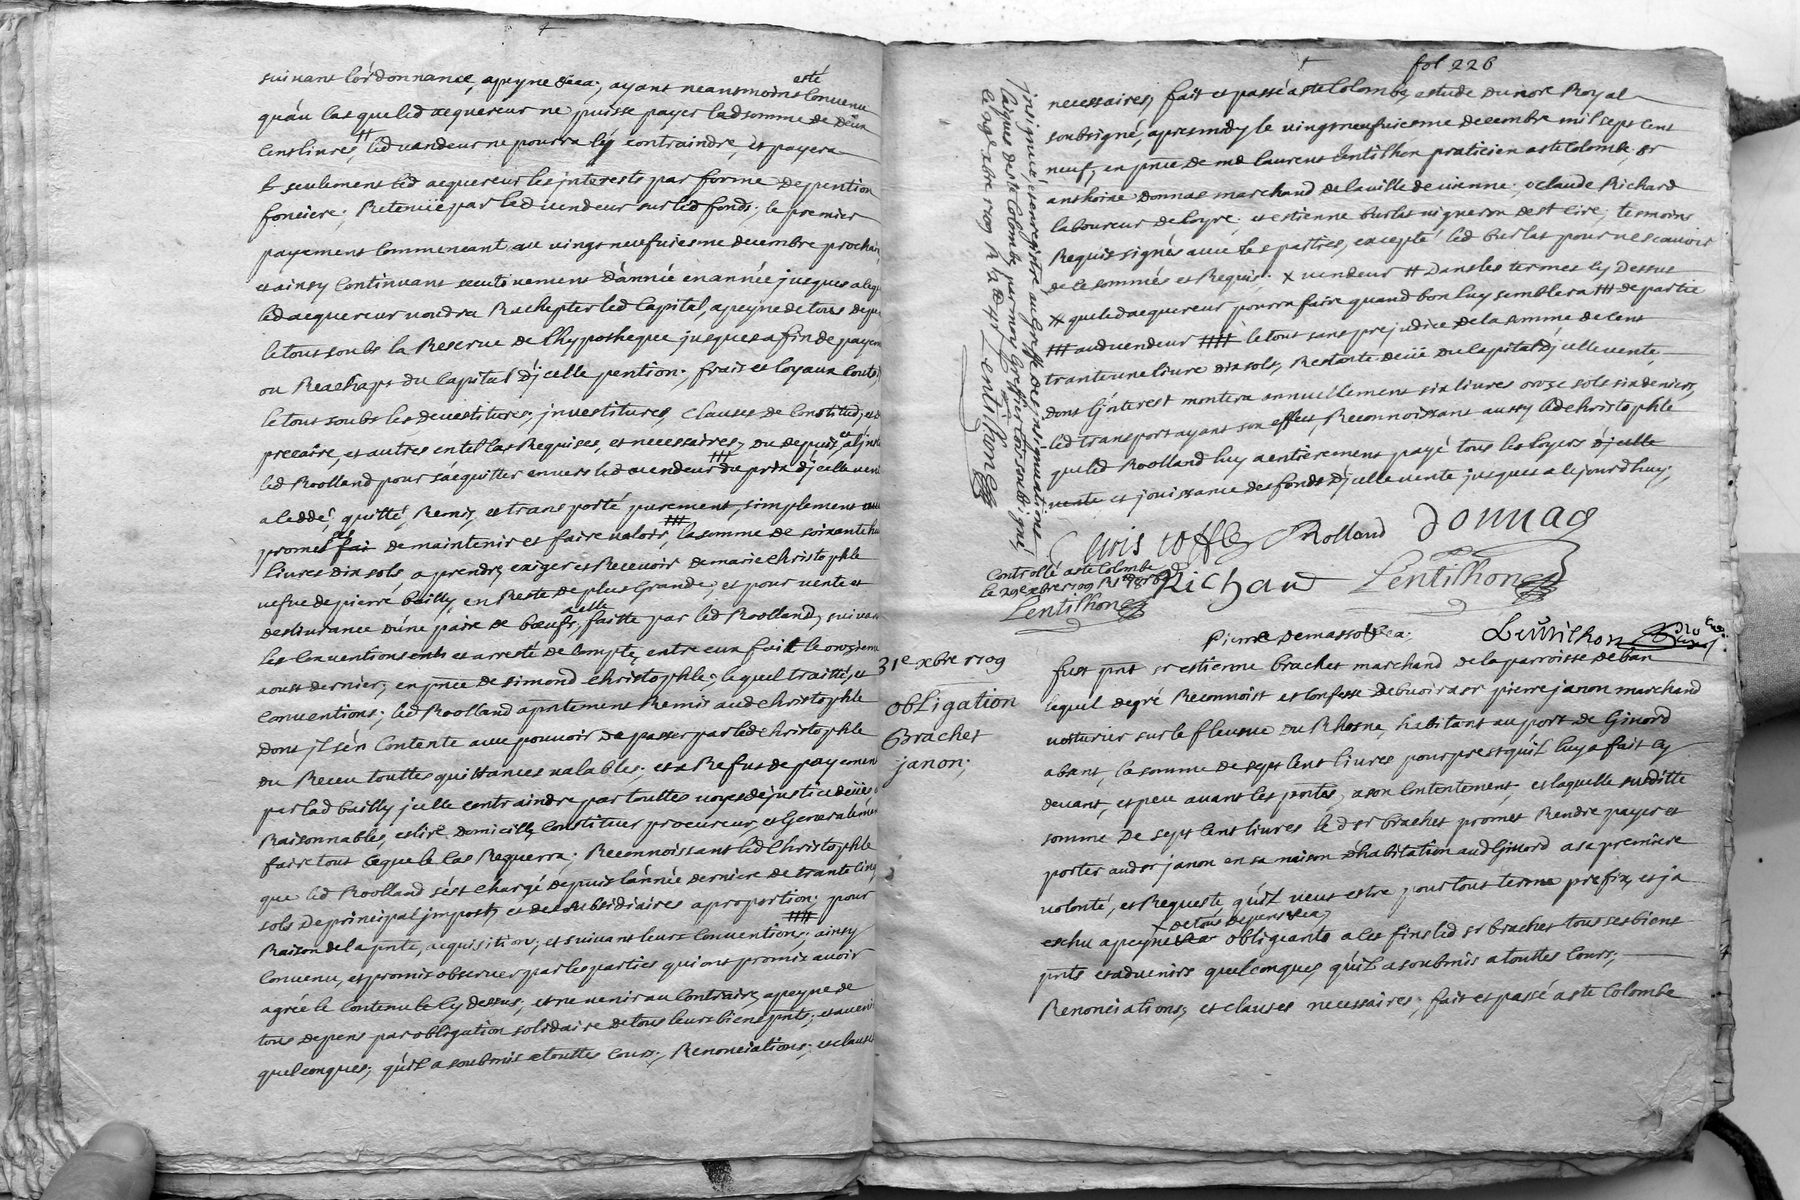 suivant l'ordonnance, apeyne &ca; ayant neansmoins esté Convenu
qu'au Cas que led acquereur ne puisse payer lad somme de deux
Cens livres, led vandeur ne pourra l'y contraindre, et payera
seulement led acquereur les jnterests par forme de pention
fonciere; Retenüe par led vendeur sur led fonds; le premier
payement Commencant au vingt neufuiesme decembre prochain
et ainsy Continuant secutivement d'année en année jusques a leq
led acquereur voudra Rachepter led Capital, apeyne de tous depen
le tout soubs la Reserve de l'hypotheque jusques a fin de payem
ou Reachapt du Capital d'jcelle pention; frais et loyaux Couts
le tout soubs les devestitures; jnvestitures, Clauses de Constitud; et
precaire, et autres en tel Cas Requises, et necessaires, du depuis et a l'jnst
led Roolland pour s'acquitter envers led vendeur ## du prix d'jcelle vent
a ceddé, quitté, Remis, et transporté purement, simplement
promet de maintenir et faire valoir, ## la somme de soixante hu
livres dix sols, a prendre, exiger et Recevoir de marie Christophle
vefue de pierre bailly, en Reste de plus Grande; et pour vente et
deslivrance d'une paire de bœufs, a elle faitte par led Roolland, suivant
les Conventions et arresté de Compte, entre eux fait le onziem
aoust dernier; en pnce de simond Christophle; lequel traitté, et
Conventions; led Roolland a pntement Remis aud Christophle
dont jl s'en Contente avec pouvoir de passer par led Christophle
du Receu touttes quittances valables; et a Refus de payement
par lad bailly jcelle contraindre par touttes voyes de justice deües
Raisonnables, eslire domicille, Constituer procureur, et Generalemen
faire tout ceque le Cas Requerra; Reconnoissant led Christophle
que led Roolland s'est chargé depuis l'année derniere de trante Cinq
sols de principal jmpost, et des subsidiaires a proportion; #### pour
Raison de la pnte, acquisition; et suivant leurs Convention; ainsy
Convenu, et promis observer par les parties qui ont promis avoir
agrée le Contenu Cy dessus; et ne venir au Contraire, apeyne de
tous depens par obligation solidaire de tous leurs biens pnts; et aveni
quelconques; qu'il a soubmis a touttes Cours; Renonciations; et clauses
fol 226
jnsignué et enregistré au Greffe des jnsignuations
laiques de ste Colombe par moy Greffier soubsigné
Lentilhon
necessaires, fait et passé a ste Colombe, estude du nore Royal
soubsigné, apres midy le vingt neufuiesme decembre mil sept cent
neuf, en pnce de me laurent Lentilhon praticien a ste Colombe, sr
anthoine Donnas marchand de la ville de vienne; claude Richard
laboureur de loyre; et estienne burlat vigneron de st Cire, tesmoins
Requis signés avec les parties, excepté led burlat pour ne scavoir
de ce sommés et Requis. x vendeur # Dans les termes Cy Dessus
x que led acquereur pourra faire quand bon luy semblera ### de partie
### aud vendeur #### le tout sans prejudice de la somme de Cent
trante une livre dix sols, Restante deüe du Capital d'jcelle vente,
dont l'jnterest montera annuellement six livres onze sols six deniers,
led transport ayant son effect, Reconnoissant aussy led christophle
que led Roolland luy a entierement payé tous les loyers d'jcelle
vente et jouissance des fonds d'jcelle vente jusques a cejourd'huy;
Christoffle Rolland Donnas
Controllé a ste Colombe
Richard Lentilhon
Lentilhon
Lentilhon
31e xbre 1709
obligation
Brachet
janon;
Pierre Demasso &ca;
fust pnt sr estienne brachet marchand de la parroisse de ban
lequel de gré Reconnoist et Confesse debvoir a sr pierre janon marchand
voiturier sur le fleuve du Rhosne, habitant au port de Givord
absent, la somme de sept Cent livres pour prest qu'il luy a fait Cy
devant, et peu avant les pntes, a son Contentement, et laquelle suditte
somme de sept Cent livres led sr brachet promet Rendre payer et
porter aud sr janon en sa maison d'habitation aud Givord a sa premiere
volonté, et Requeste qu'il veut estre pour tout terme prefix, et ja
eschu apeyne x de tous depens &ca obligeants a ces fins led sr brachet tous ses biens
pnts et advenirs quelconques, qu'il a soubmis a touttes Cours;
Renonciations; et clauses necessaires; fait et passé a ste Colombe